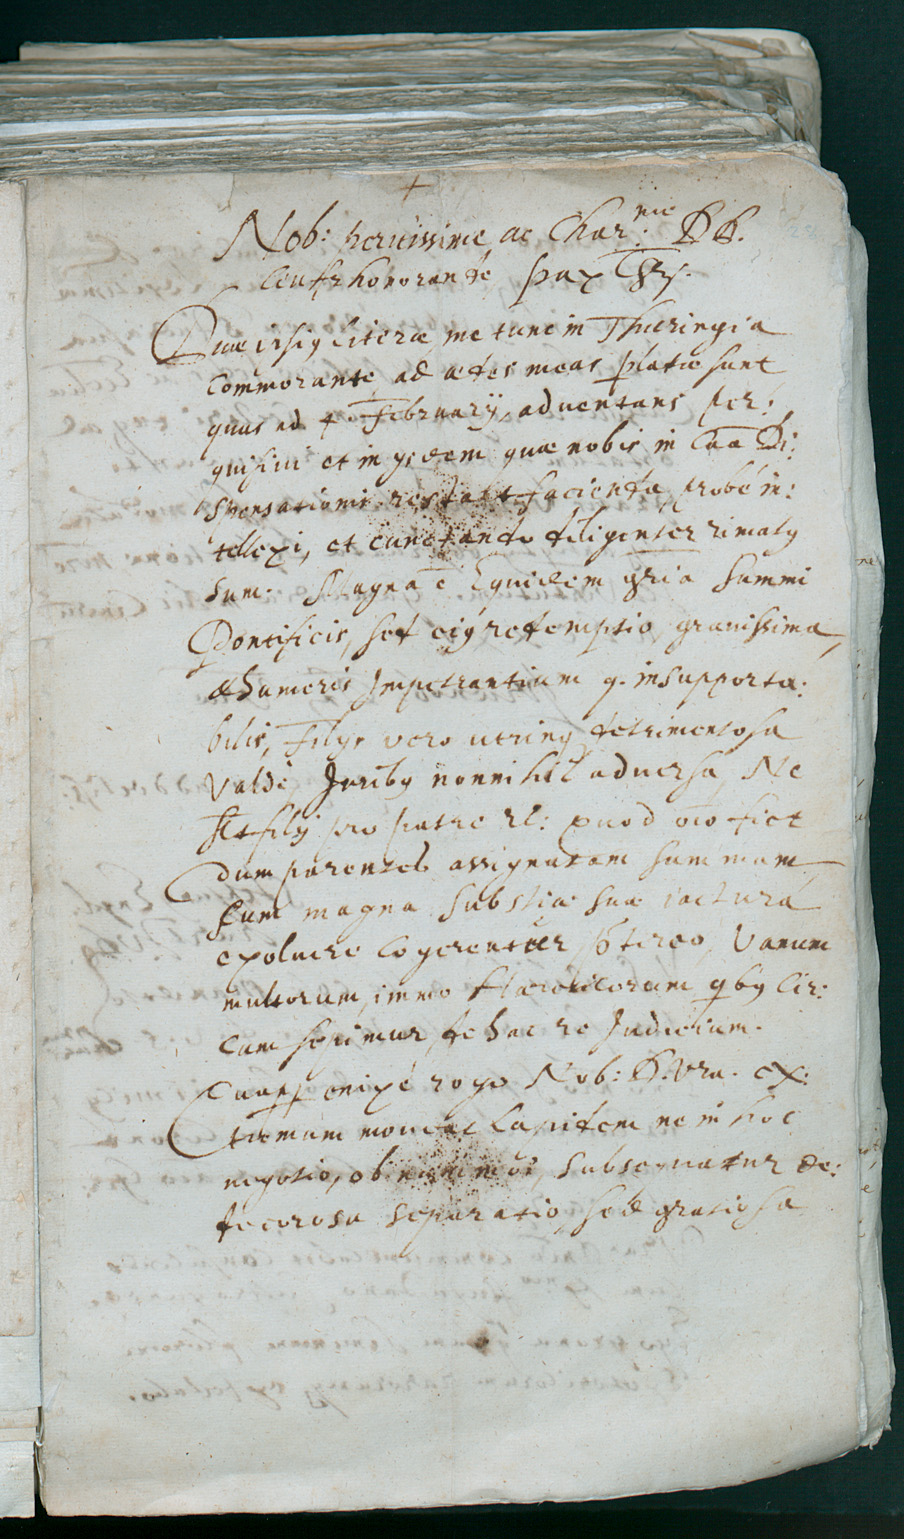 +
Nob: heruissime ac Char:me DB.
Confr honorande pax Chr.
Binae ipsiq literae, me tunc in Thuringia
Commorante, ad aedes meas platae sunt
quas ad 4. February, adventans per:
quisivi et in ysdem quae nobis in Caa Di:
spensationis restant facienda, probè in:
tellexi, et cunctando diligenter rimatq
sum. Magna ē Equidem gria Summi
Pontificis, sed eiq redemptio gravissima,
& humeris Impetrantium q. insupporta:
bilis, Filys vero utrinq detrimentosa
valdè Juribq nonnihil adversa, Ne
st filij pro patre rl: quod oīo fiet
dum parentes assignatam summam
Cum magna substiae suae iacturâ
exoluere cogerentur, Pōtereo, Varium
multorum, immo Haereticorum qbq Cir:
cum sepimur, de hac re Judicium.
Quapp. enixè rogo Nob: D. Vra. ex:
tremum moveat lapidem ne in hoc
negotio, ob nummos, subsequatur de:
decorosa separatio, sed gratiosa